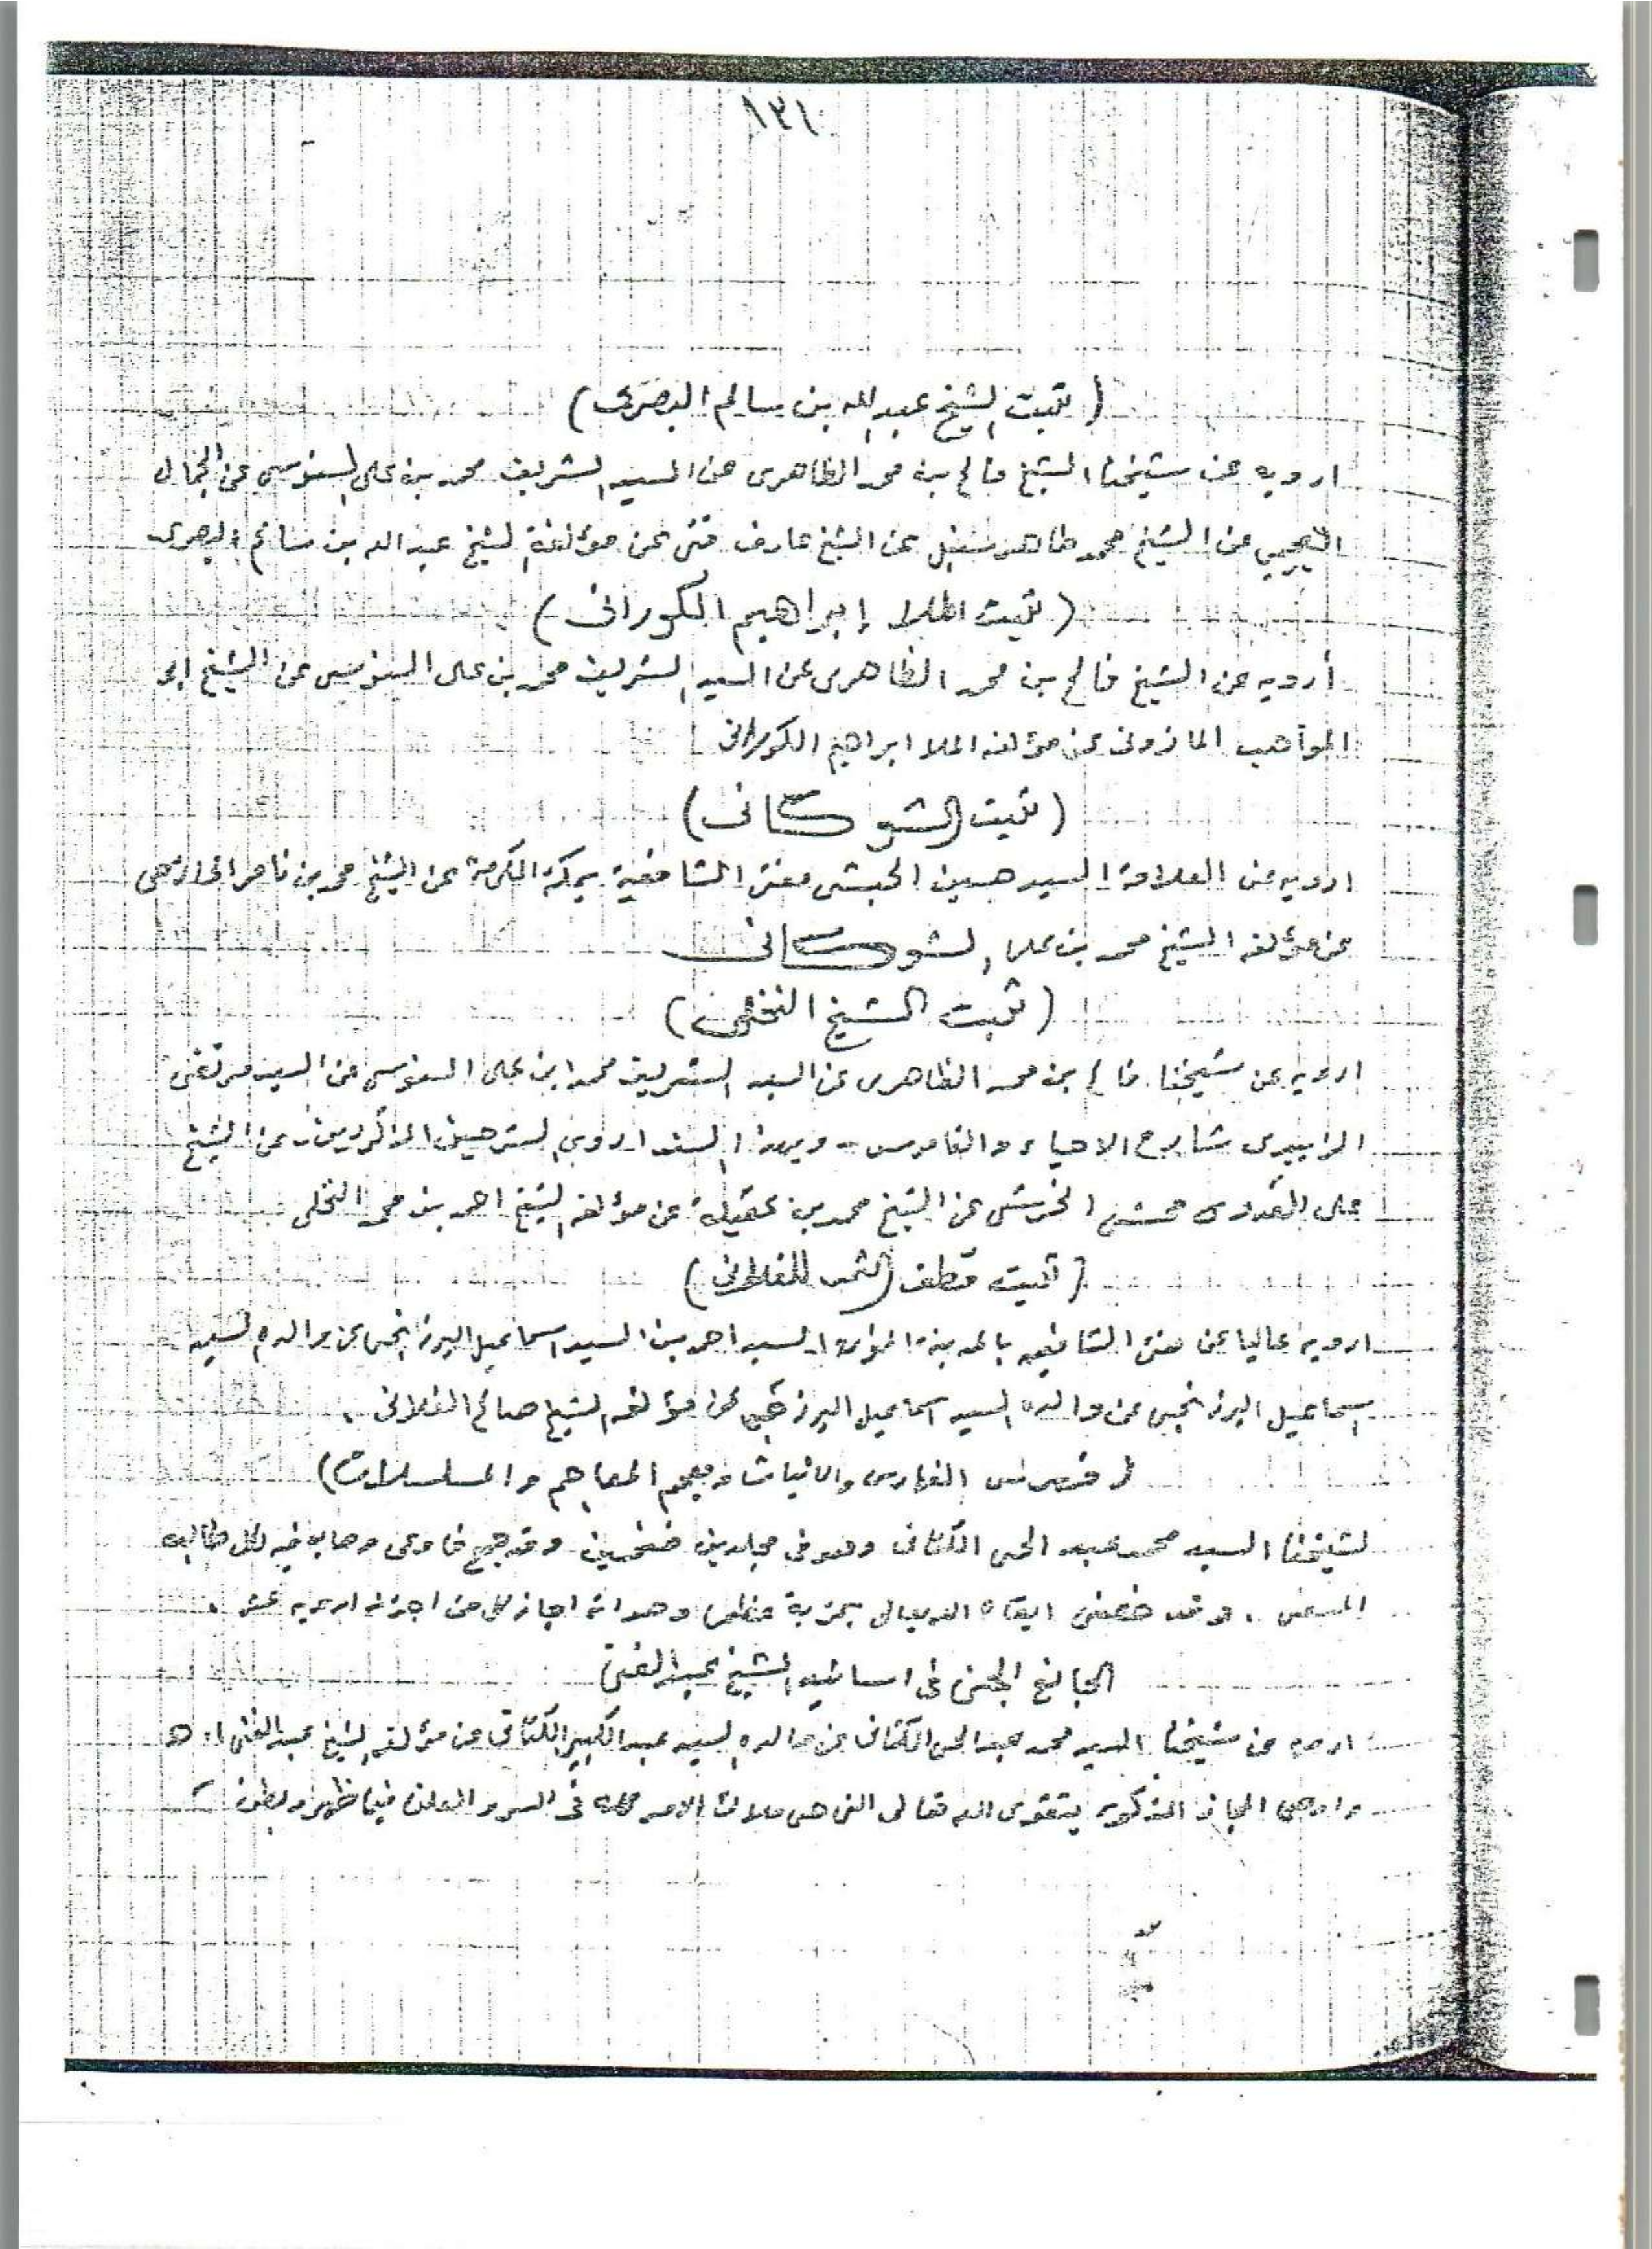 ١٢١
( ثبت الشيخ عبد الله بن سالم البصرى )
ارويه عن شيخنا الشيخ فالح بن محمد الظاهرى عن السيد الشريف محمد بن على السنوسى عن الجمال
العجيمى عن الشيخ محمد طاهر سنبل عن الشيخ عارف فتنى عن مؤلفه الشيخ عبد الله بن سالم البصرى
( ثبت الملا إبراهيم الكورانى )
أرويه عن الشيخ فالح بن محمد الظاهرى عن السيد الشريف محمد بن على السنوسى عن الشيخ ابو
المواهب المازونى عن مؤلفه الملا ابراهيم الكورانى
( ثبت الشوكانى )
ارويه عن العلامة السيد حسين الحبشى مفتى الشافعية بمكة المكرمة عن الشيخ محمد بن ناصر الحازمى
عن مؤلفه الشيخ محمد بن على الشوكانى
( ثبت الشيخ النخلى )
ارويه عن شيخنا فالح بن محمد الظاهرى عن السيد الشريف محمد ابن على السنوسى عن السيد مرتضى
الزبيدى شارح الاحياء والقاموس - وبهذا السند اروى الشرحين المذكورين - عن الشيخ
على العدوى محشى الخرشى عن الشيخ محمد بن عقيلة عن مؤلفه الشيخ احمد بن محمد النخلى
( ثبت قطف الثمر للفلانى )
ارويه عاليا عن مفتى الشافعيه بالمدينة المنوره السيد احمد بن السيد اسماعيل البرزنجى عن والده السيد
اسماعيل البرزنجى عن والده السيد اسماعيل البرزنجى عن مؤلفه الشيخ صالح الفلانى .
( فهرس الفهارس والاثبات ومعجم المعاجم والمسلسلات )
لشيخنا السيد محمد عبد الحى الكتانى وهو فى مجلدين ضخمين وقد جمع فاوعى وصا به فيه لكل طالب
وقد خصنى ابقاه الله بمزية عظمى وهى انه اجاز كل من اجزته ارويه عنه .
اليانع الجنى فى اسانيد الشيخ عبد الغنى
ارويه عن شيخنا السيد محمد عبد الحى الكتانى عن والده السيد عبد الكبير الكتانى عن مؤلفه الشيخ عبد الغنى ا.هـ
واوصى المجاز المذكور بتقوى الله تعالى التى هى ملاك الامر كله فى السر والعلن فيما ظهر وبطن